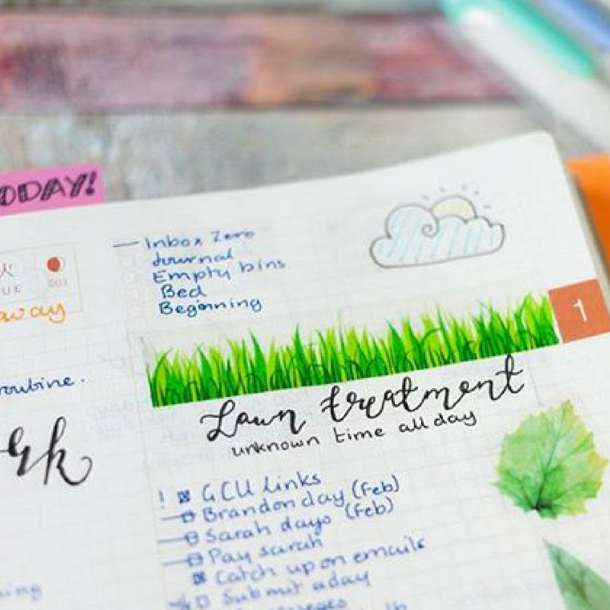 ODAY!
UE 003
away
routine.
rk
— Inbox Zero
Journal
Empty bins
Bed
Beginning
1
Lawn treatment
unknown time all day
! GCU links
Brandon day (Feb)
Sarah days (Feb)
Pay sarah
Catch up on emails
Submit a day